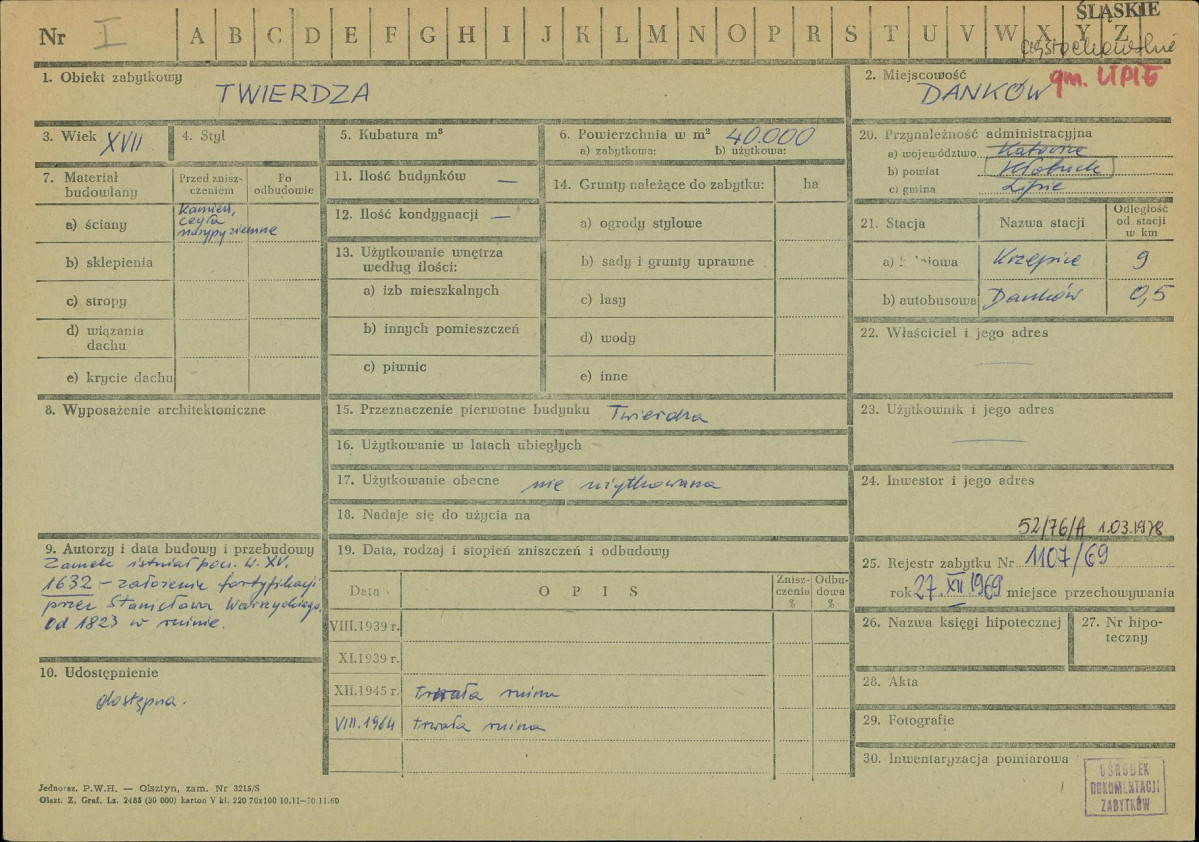 ŚLĄSKIE
Nr I A B C D E F G H I J K L M N O P R S T U V W X Y Z
częstochowskie
1. Obiekt zabytkowy
TWIERDZA
2. Miejscowość
gm. LIPIE
DANKÓW
3. Wiek XVII
4. Styl
5. Kubatura m³
6. Powierzchnia w m² 40.000
a) zabytkowa: b) użytkowa:
7. Materiał budowlany
Przed znisz-
czeniem
Po
odbudowie
a) ściany
kamień,
cegła
nasypy ziemne
b) sklepienia
c) stropy
d) wiązania
dachu
e) krycie dachu
8. Wyposażenie architektoniczne
9. Autorzy i data budowy i przebudowy
Zamek istniał poł. w. XV.
1632 – założenie fortyfikacji
przez Stanisława Warszyckiego.
Od 1823 w ruinie.
10. Udostępnienie
dostępna.
11. Ilość budynków —
12. Ilość kondygnacji —
13. Użytkowanie wnętrza
według ilości:
a) izb mieszkalnych
b) innych pomieszczeń
c) piwnic
14. Grunty należące do zabytku: ha
a) ogrody stylowe
b) sady i grunty uprawne
c) lasy
d) wody
e) inne
15. Przeznaczenie pierwotne budynku Twierdza
16. Użytkowanie w latach ubiegłych –
17. Użytkowanie obecne nie użytkowana
18. Nadaje się do użycia na
19. Data, rodzaj i stopień zniszczeń i odbudowy
Data
O P I S
Znisz-
czenia
%
Odbu-
dowa
%
VIII.1939 r.
XI.1939 r.
XII.1945 r. trwała ruina
VIII.1964 trwała ruina
20. Przynależność administracyjna
a) województwo Katowice
b) powiat Kłobuck
c) gmina Lipie
21. Stacja
Nazwa stacji
Odległość
od stacji
w km
a) Krzepice 9
b) autobusowa Danków 0,5
22. Właściciel i jego adres
—
23. Użytkownik i jego adres
—
24. Inwestor i jego adres
52/76/A 1.03.1978
25. Rejestr zabytku Nr 1107/69
rok 27.XII 1969 miejsce przechowywania
26. Nazwa księgi hipotecznej
27. Nr hipo-
teczny
28. Akta
29. Fotografie
30. Inwentaryzacja pomiarowa
OŚRODEK
DOKUMENTACJI
ZABYTKÓW
Jednoraz. P.W.H. — Olsztyn, zam. Nr 3215/S
Olszt. Z. Graf. Lz. 2485 (30 000) karton V kl. 220 70x100 10.11—30.11.60